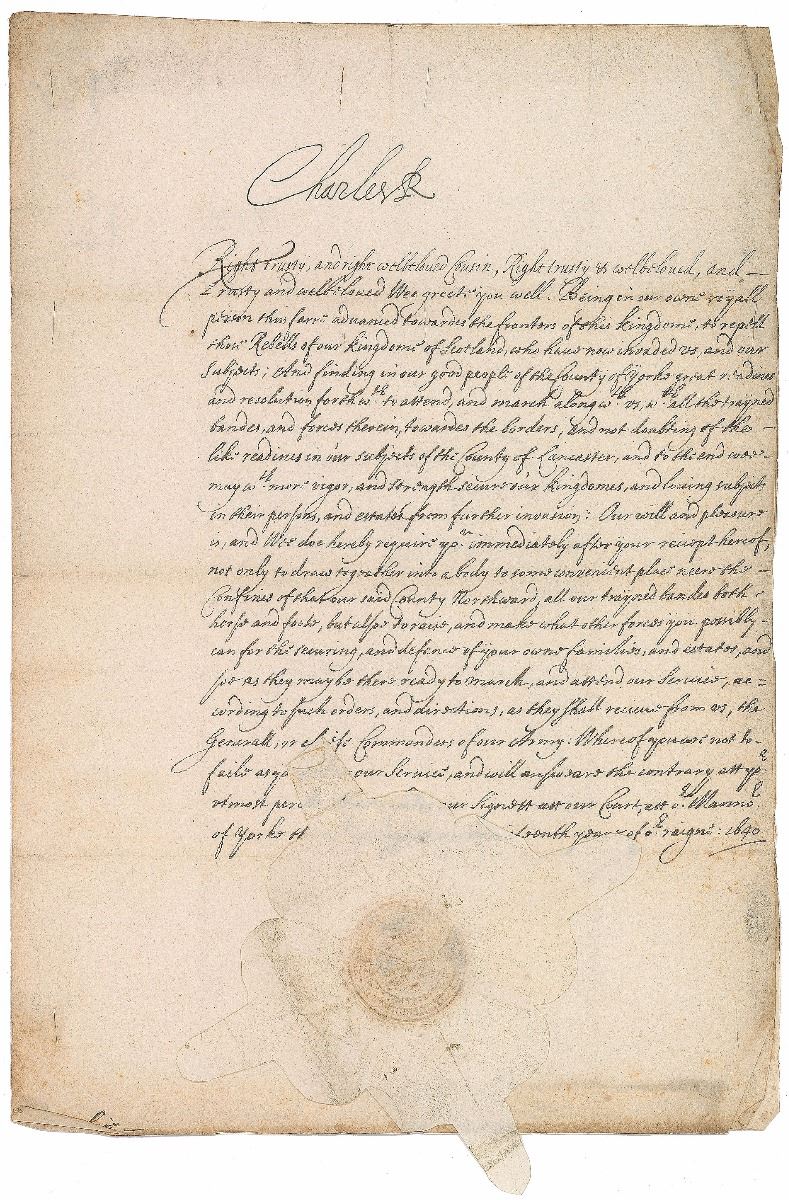 Charles R
Right trusty, and right welbeloved Cousin, Right trusty & welbeloved, and
Trusty and welbeloved Wee greete you well. Being in our owne royall
person thus farre advanced towardes the fronters of this kingdome, to repell
those Rebells of our kingdome of Scotland, who have now invaded us, and our
Subjects; And finding in our good people of the County of Yorke great readines
and resolution forthwth to attend, and march along wth us, wth all the trayned
bandes, and forces therein, towardes the borders, And not doubting of the
like readines in our subjects of the County of Lancaster, and to the end wee
may wth more vigor, and strength secure our kingdomes, and loving subjects
in their persons, and estates from further invasion: Our will and pleasure
is, and Wee doe hereby require you immediately after your receipt hereof,
not only to draw together into a body to some convenient place neere the
Confines of that our said County Northward, all our trayned bandes both
horse and foote, but also to raise, and make what other forces you possibly
can for the securing, and defence of your owne families, and estates, and
soe as they may be there ready to march, and attend our Service, ac=
cording to such orders, and directions, as they shall receive from us, the
Generall, or Commanders of our Army: Whereof you are not to
faile as our Service, and will answeare the contrary att yor
utmost our Signett att our Court, att or Mannor
of Yorke yeare of or raigne: 1640